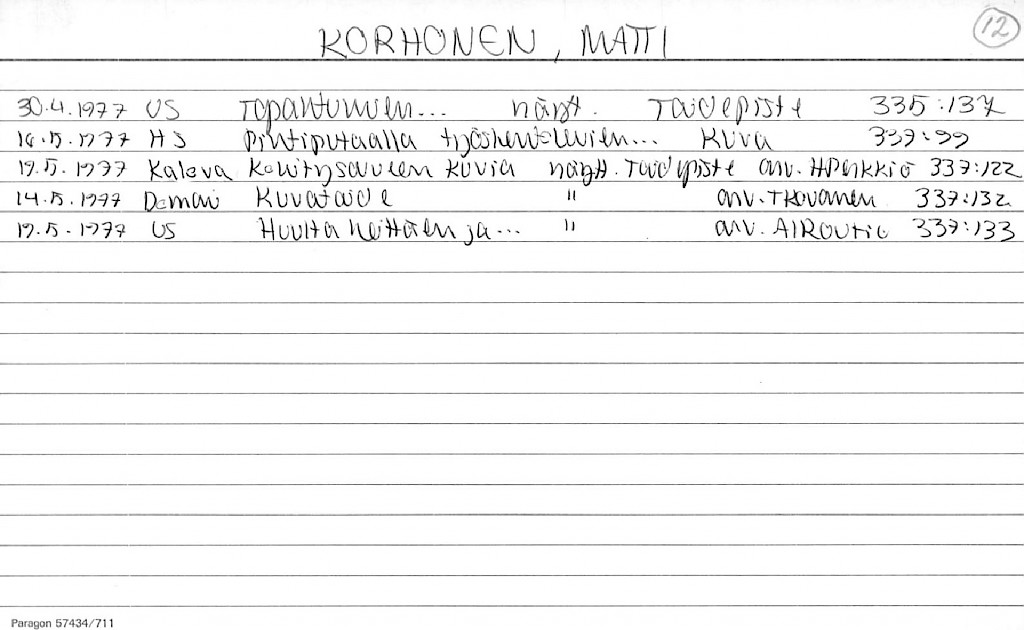 12
KORHONEN, MATTI
30.4.1977 US Tapahtumien... näytt. Taidepiste 335:137
16.5.1977 HS Pihtiputaalla työskentelevien... Kuva 337:99
19.5.1977 Kaleva Kehitysalueen kuvia näytt. Taidepiste arv. HPerkkiö 337:122
14.5.1977 Demari Kuvataide " arv. TKovanen 337:132
19.5.1977 US Huulta heittäen ja... " arv. AIRoutio 337:133
Paragon 57434/711